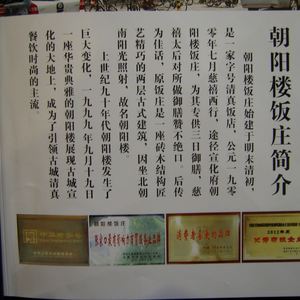 朝阳楼饭庄简介
朝阳楼饭庄始建于明末清初，
是一家字号清真饭店，公元一九零
零年七月慈禧西行，途径宣化府朝
阳楼饭庄，为其专供三日御膳，慈
禧太后对所做御膳赞不绝口，后传
为佳话，原饭庄是一座砖木结构匠
艺精巧的两层古式建筑，因坐北朝
南阳光照射，故名朝阳楼。
上世纪九十年代朝阳楼发生了
巨大变化，一九九九年九月十九日
一座华贵典雅的朝阳楼展现古城宣
化的大地上，成为了引领古城清真
餐饮时尚的主流。
朝阳楼饭庄
消费者喜爱的品牌
2012年度